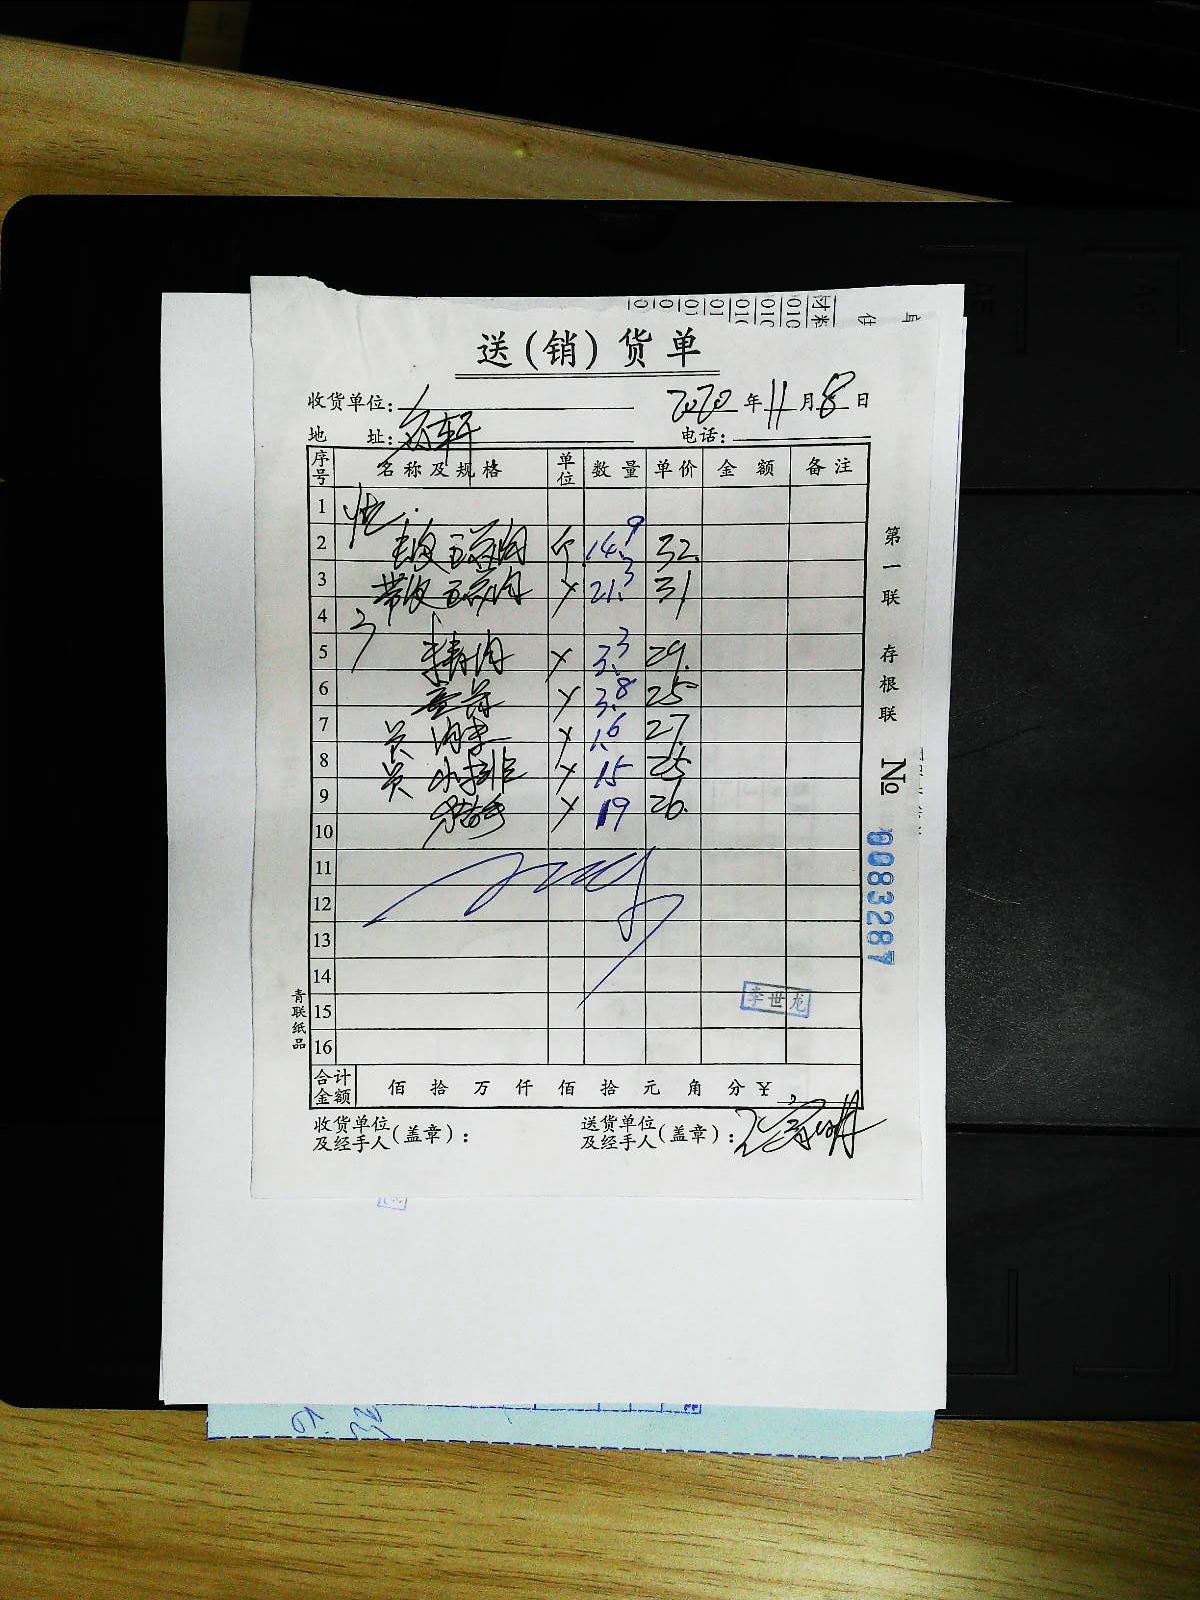 送(销)货单
收货单位: 2020年11月8日
地 址: 轩 电话:
序号 名称及规格 单位 数量 单价 金额 备注
1
2 五花肉 个 14.9 32
3 带皮五花肉 〃 21.3 31
4
5 精肉 〃 3.3 29
6 〃 3.8 25
7 员 肉末 〃 1.6 27
8 员 小排 〃 15 25
9 猪手 〃 19 26
10
11
12
13
14
15
16
李世龙
合计金额 佰 拾 万 仟 佰 拾 元 角 分 ¥
收货单位及经手人(盖章): 送货单位及经手人(盖章):
第一联 存根联
No 0083287
青联纸品